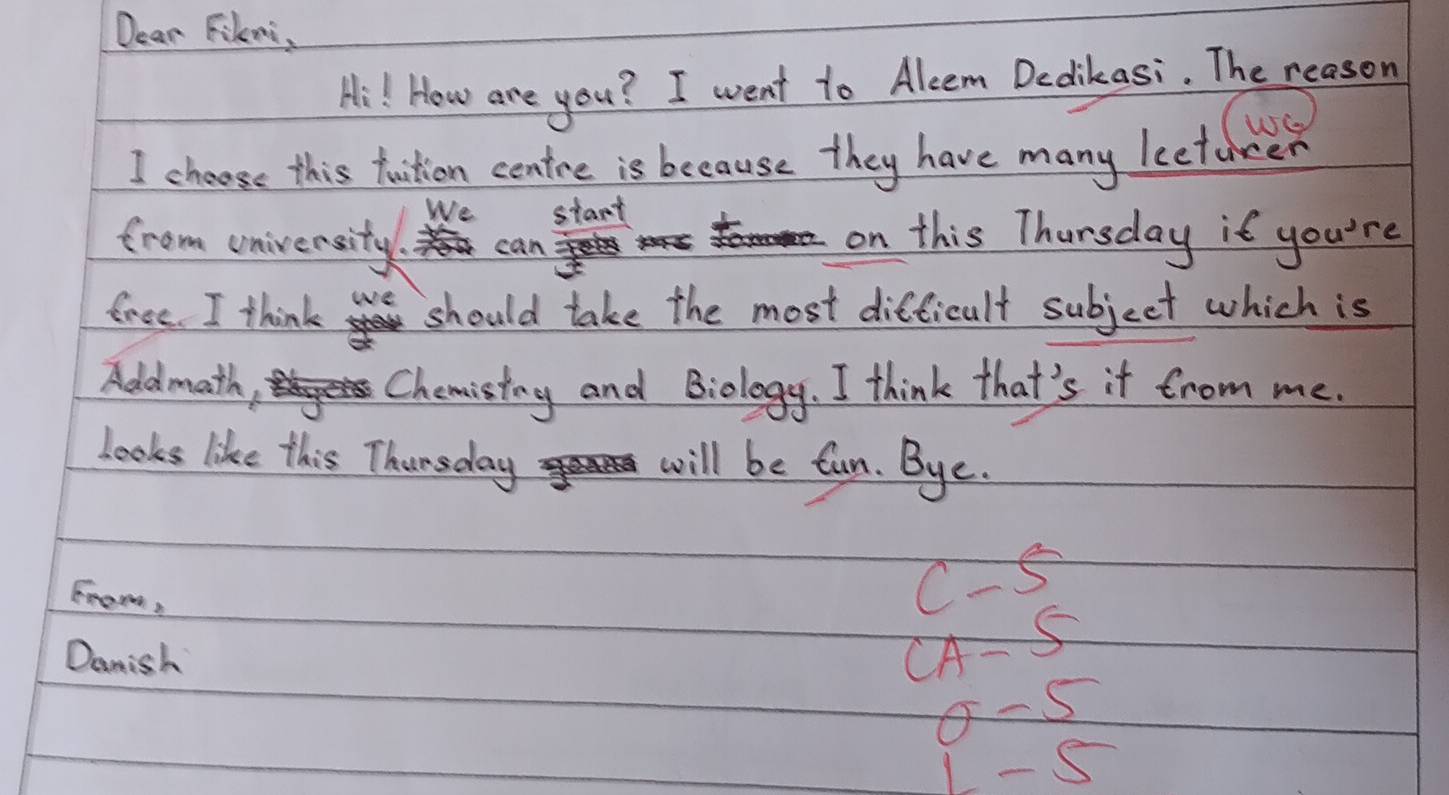 Dear Fikri,
Hi! How are you? I went to Aleem Dedikasi. The reason
I choose this tuition centre is because they have many lecturer
WG
from university. We can start on this Thursday if you're
free. I think we should take the most difficult subject which is
Addmath, Chemistry and Biology. I think that's it from me.
Looks like this Thursday will be fun. Bye.
From,
Danish
C - 5
CA - 5
O - 5
L - 5